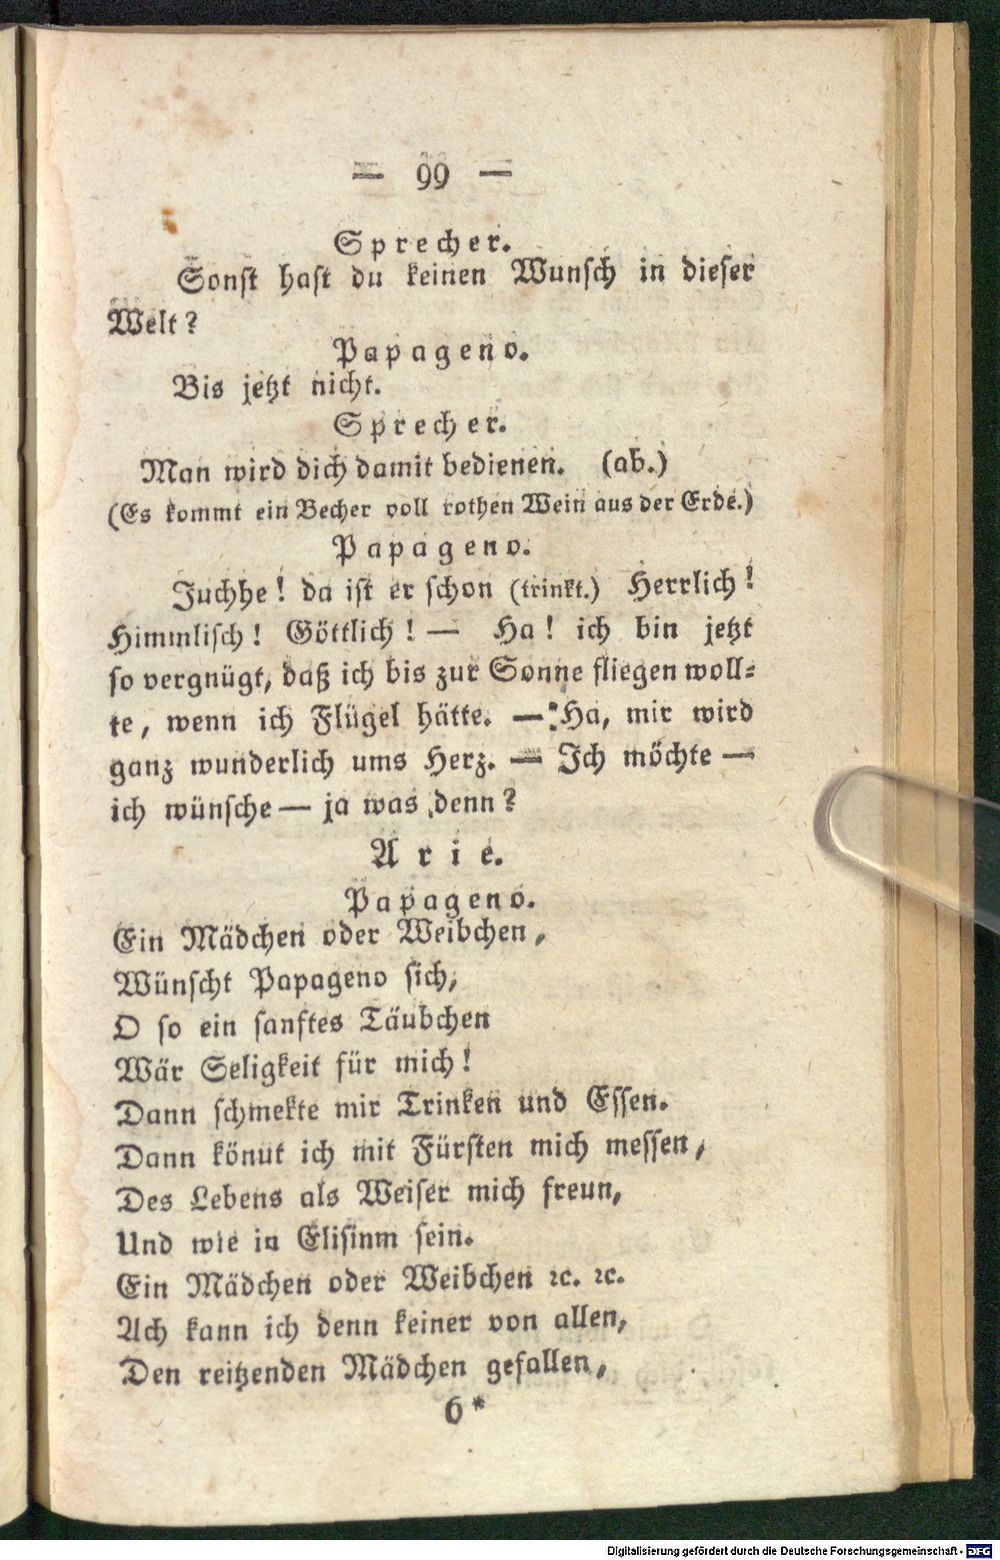 — 99 —
Sprecher.
Sonst hast du keinen Wunsch in dieser
Welt?
Papageno.
Bis jetzt nicht.
Sprecher.
Man wird dich damit bedienen. (ab.)
(Es kommt ein Becher voll rothen Wein aus der Erde.)
Papageno.
Juchhe! da ist er schon (trinkt.) Herrlich!
Himmlisch! Göttlich! — Ha! ich bin jetzt
so vergnügt, daß ich bis zur Sonne fliegen woll-
te, wenn ich Flügel hätte. — Ha, mir wird
ganz wunderlich ums Herz. — Ich möchte —
ich wünsche — ja was denn?
Arie.
Papageno.
Ein Mädchen oder Weibchen,
Wünscht Papageno sich,
O so ein sanftes Täubchen
Wär Seligkeit für mich!
Dann schmekte mir Trinken und Essen.
Dann könut ich mit Fürsten mich messen,
Des Lebens als Weiser mich freun,
Und wie in Elisinm sein.
Ein Mädchen oder Weibchen ꝛc. ꝛc.
Ach kann ich denn keiner von allen,
Den reitzenden Mädchen gefallen,
6*
Digitalisierung gefördert durch die Deutsche Forschungsgemeinschaft - DFG